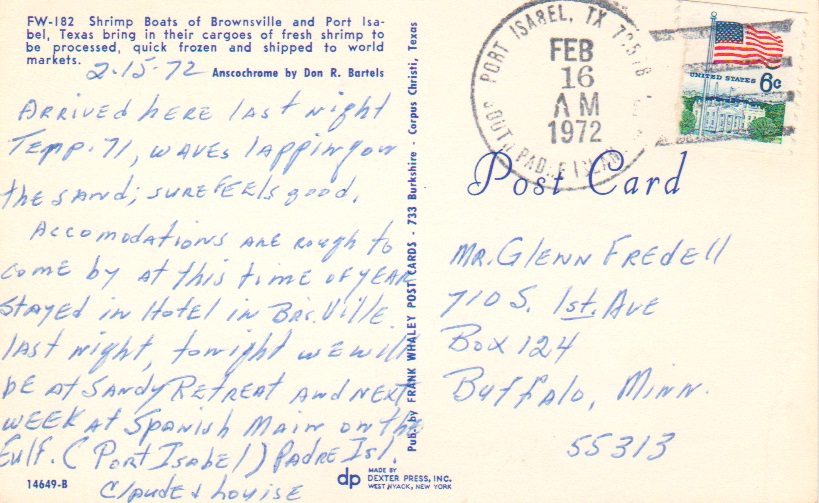 FW-182 Shrimp Boats of Brownsville and Port Isa-
bel, Texas bring in their cargoes of fresh shrimp to
be processed, quick frozen and shipped to world
markets.
2-15-72 Anscochrome by Don R. Bartels
Arrived here last night
Temp. 71, waves lapping on
the sand; sure feels good.
Accomodations are rough to
come by at this time of year
Stayed in Hotel in Br's.Ville
last night, tonight we will
be at Sandy Retreat and next
week at Spanish Main on the
Gulf. (Port Isabel) Padre Isl.
Claude & Louise
14649-B
Pub. by FRANK WHALEY POST CARDS - 733 Burkshire - Corpus Christi, Texas
dp MADE BY
DEXTER PRESS, INC.
WEST NYACK, NEW YORK
PORT ISABEL, TX 78578
FEB
16
AM
1972
SOUTH PADRE ISLAND
UNITED STATES 6c
Post Card
Mr. Glenn Fredell
710 S. 1st. Ave
Box 124
Buffalo, Minn.
55313